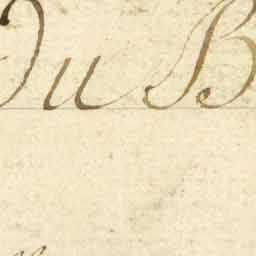 Du B